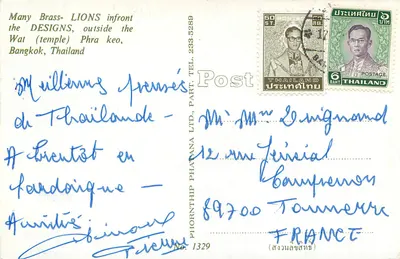 Many Brass- LIONS infront
the DESIGNS, outside the
Wat (temple) Phra keo,
Bangkok, Thailand
Meilleures pensées
de Thaïlande -
A bientôt en
-
Amitiés
Pierre
PHORNTHIP PHATANA LTD., PART. TEL. 233-5289
No. 1329
Post
THAILAND
ประเทศไทย
6
POSTAGE
THAILAND
Mr Mme
12 rue
89700 Tonnerre
FRANCE
(สงวนลิขสิทธิ์)